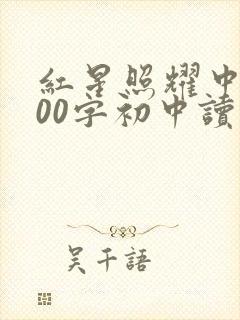 紅星照耀中
00字初中讀
吴千語